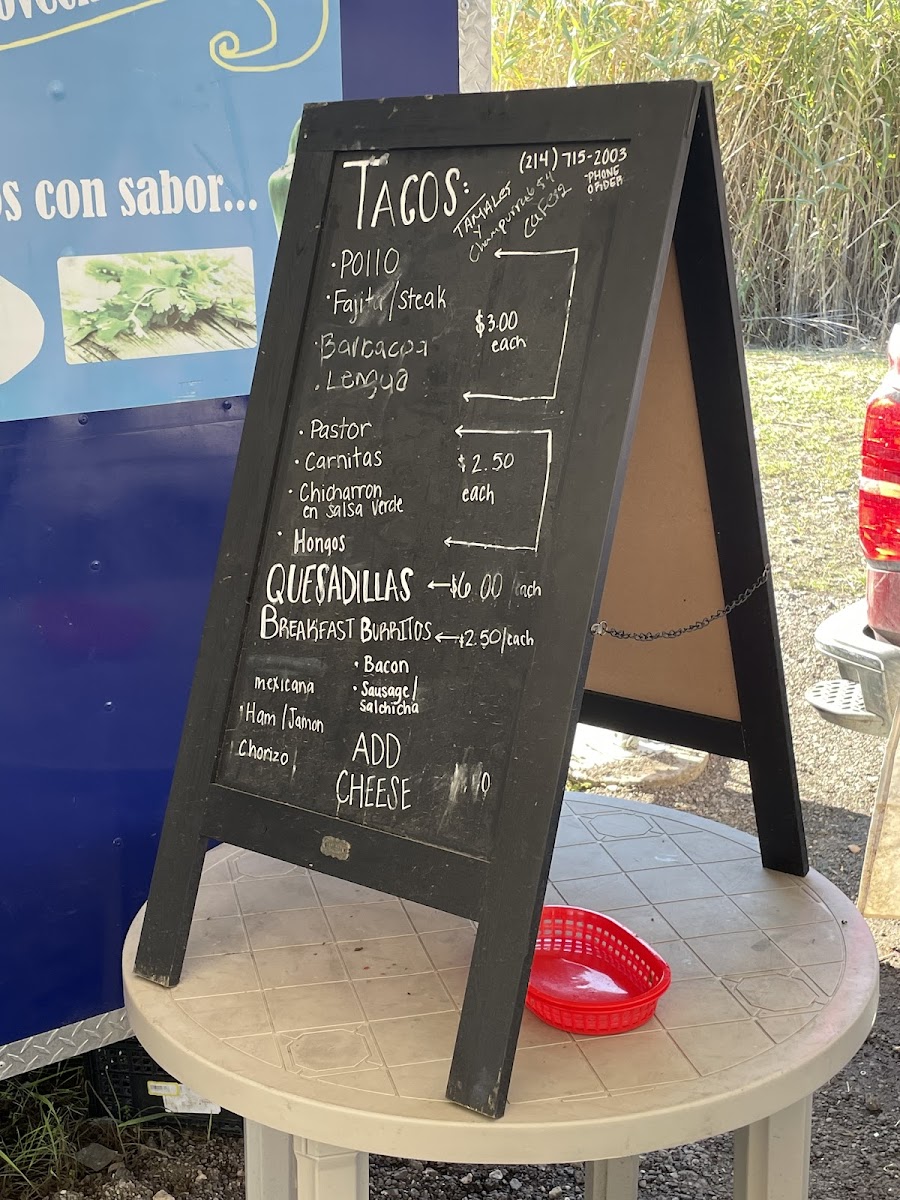 s con sabor...
TACOS:
(214) 715-2003
-PHONE
ORDER
TAMALES
Y
Champurrado $4
Cafe $2
• Pollo
• Fajita/steak
$3.00
each
• Barbacoa
• Lengua
• Pastor
• Carnitas
$2.50
each
• Chicharron
en salsa verde
• Hongos
QUESADILLAS ←$6.00 each
BREAKFAST BURRITOS ←$2.50/each
• Bacon
mexicana
• Sausage/
Salchicha
• Ham/Jamon
Chorizo
ADD
CHEESE